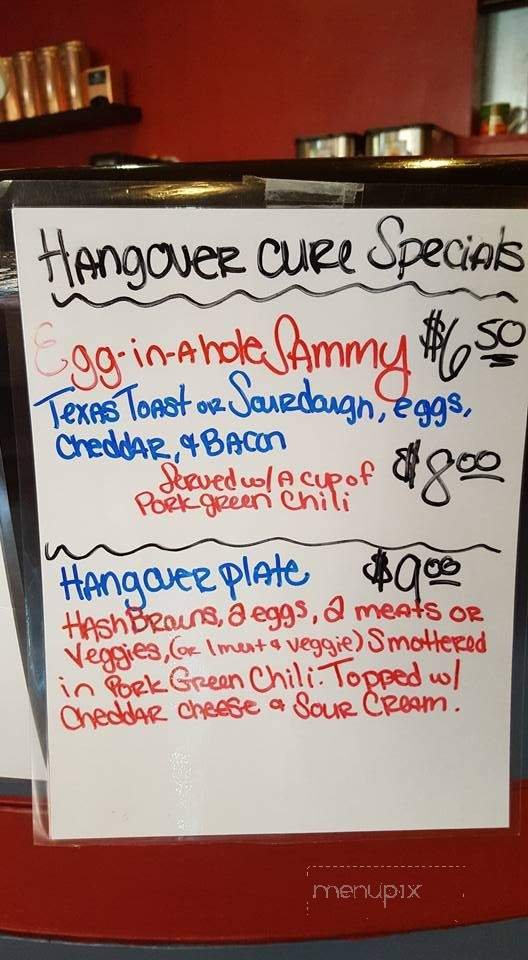 Hangover cure Specials
Egg-in-A hole Sammy $6 50
Texas Toast or Sourdough, eggs,
Cheddar, & Bacon
Served w/ A cup of $8 00
Pork green Chili
Hangover plate $9 00
HAsh Browns, 2 eggs, 2 meats or
Veggies, (or 1 meat & veggie) Smothered
in Pork Green Chili. Topped w/
Cheddar cheese & Sour Cream.
menupix